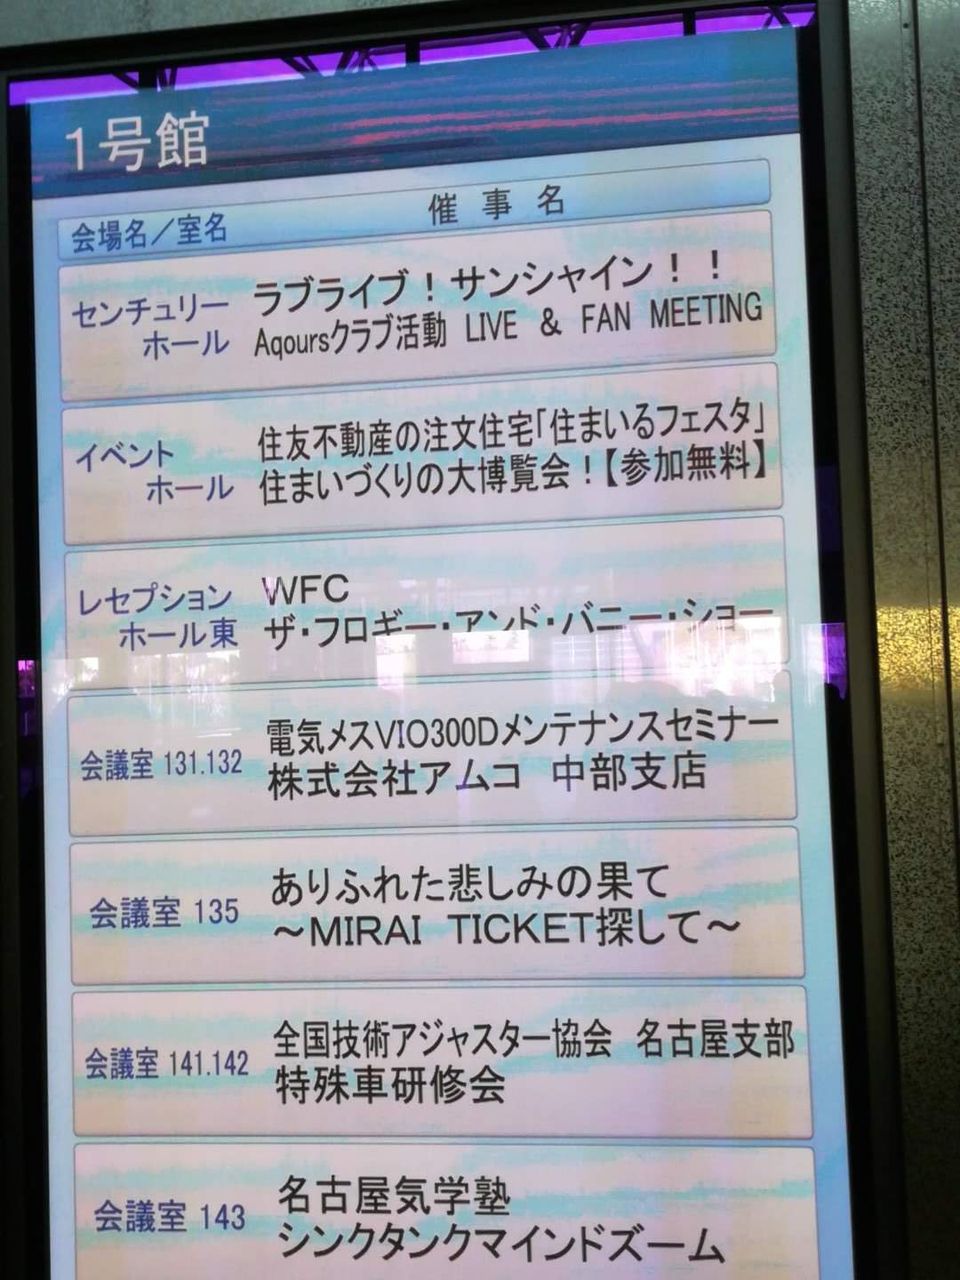 1号館
会場名／室名 催事名
センチュリー
ホール
ラブライブ！サンシャイン！！
Aqoursクラブ活動 LIVE & FAN MEETING
イベント
ホール
住友不動産の注文住宅「住まいるフェスタ」
住まいづくりの大博覧会！【参加無料】
レセプション
ホール東
WFC
ザ・フロギー・アンド・バニー・ショー
会議室 131.132
電気メスVIO300Dメンテナンスセミナー
株式会社アムコ 中部支店
会議室 135
ありふれた悲しみの果て
～MIRAI TICKET探して～
会議室 141.142
全国技術アジャスター協会 名古屋支部
特殊車研修会
会議室 143
名古屋気学塾
シンクタンクマインドズーム